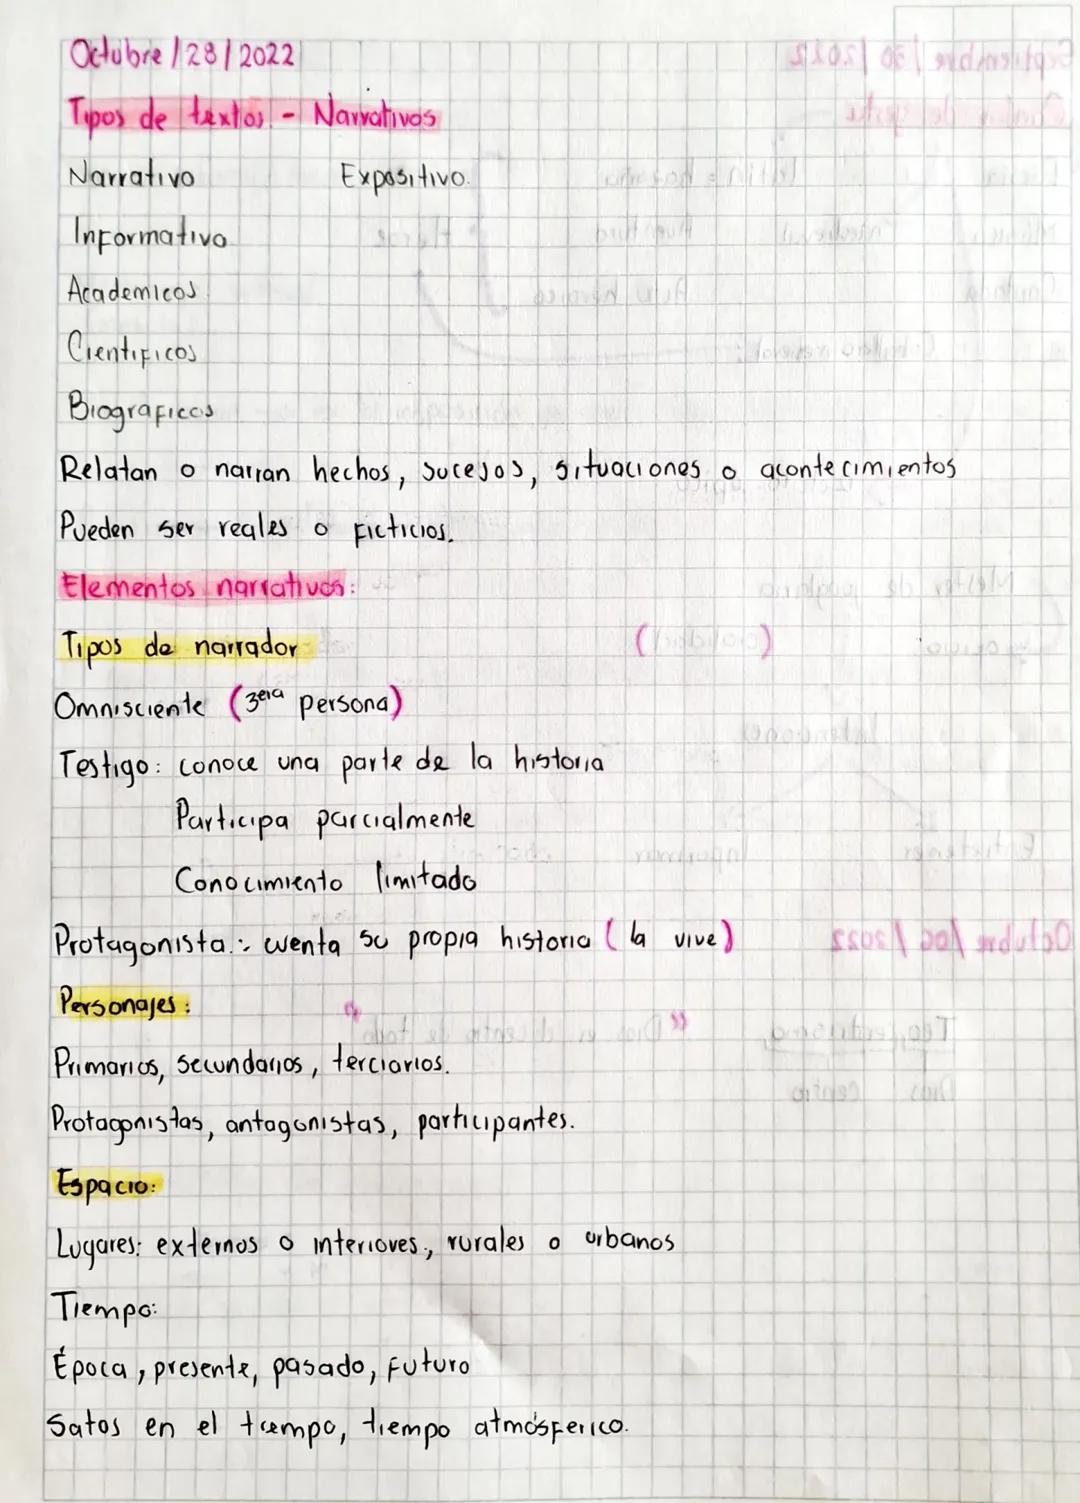 Octubre / 28 / 2022
Tipos de textos. - Narrativos
Narrativo Expositivo.
Informativo.
Academicos.
Cientificos
Biograficos
Relatan o narran hechos, sucesos, situaciones o acontecimientos
Pueden ser reales o ficticios.
Elementos narrativos:
Tipos de narrador
Omnisciente (3era persona)
Testigo: conoce una parte de la historia
Participa parcialmente
Conocimiento limitado
Protagonista.: cuenta su propia historia ( la vive)
Personajes:
Primarios, secundarios, terciarios.
Protagonistas, antagonistas, participantes.
Espacio:
Lugares: externos o interiores., rurales o urbanos
Tiempo:
Época, presente, pasado, futuro
Satos en el tiempo, tiempo atmósferico.